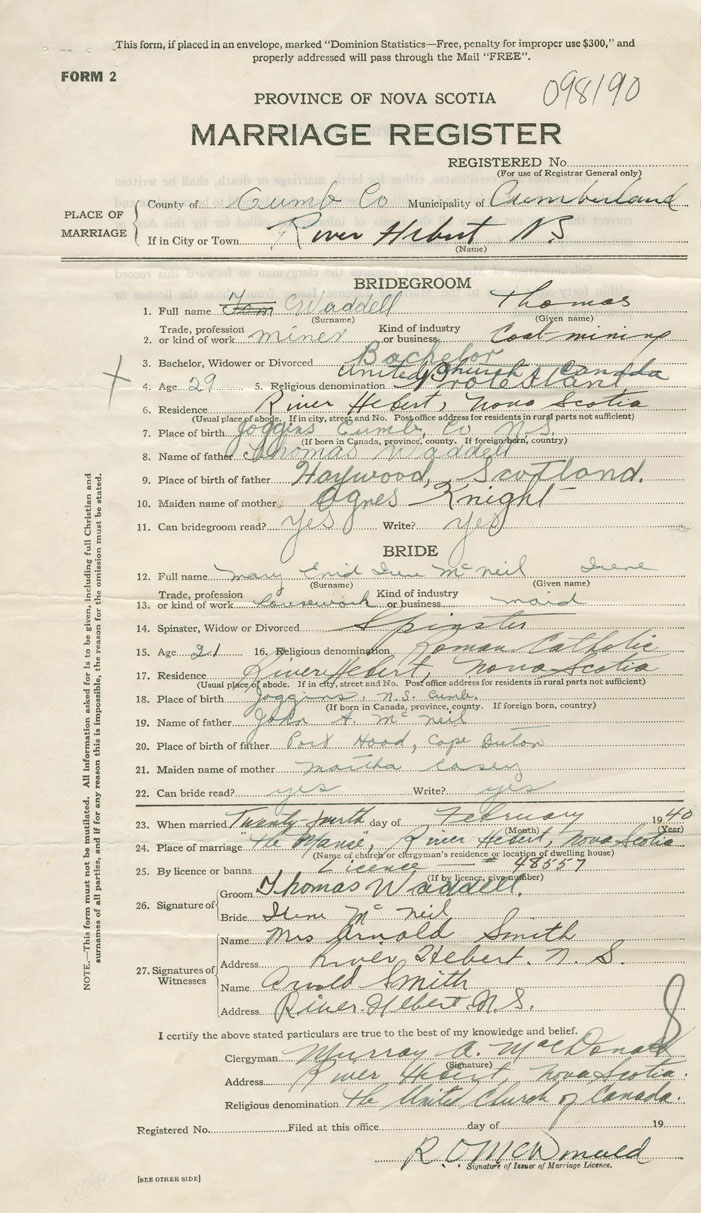 This form, if placed in an envelope, marked "Dominion Statistics—Free, penalty for improper use $300," and
properly addressed will pass through the Mail "FREE".
FORM 2
098190
PROVINCE OF NOVA SCOTIA
MARRIAGE REGISTER
REGISTERED No.
(For use of Registrar General only)
PLACE OF MARRIAGE
County of Cumb Co Municipality of Cumberland
If in City or Town River Hebert N S
(Name)
BRIDEGROOM
1. Full name Tom Waddell Thomas
(Surname) (Given name)
Trade, profession Kind of industry
2. or kind of work miner or business Coal mining
3. Bachelor, Widower or Divorced Bachelor
United Church of Canada
4. Age 29 5. Religious denomination Protestant
6. Residence River Hebert, Nova Scotia
(Usual place of abode. If in city, street and No. Post office address for residents in rural parts not sufficient)
7. Place of birth Joggins Cumb. Co N.S.
(If born in Canada, province, county. If foreign born, country)
8. Name of father Thomas Waddell
9. Place of birth of father Haywood, Scotland.
10. Maiden name of mother Agnes Knight
11. Can bridegroom read? Yes Write? yes
BRIDE
12. Full name Mary Enid Irene McNeil Irene
(Surname) (Given name)
Trade, profession Kind of industry
13. or kind of work housework or business maid
14. Spinster, Widow or Divorced Spinster
15. Age 21 16. Religious denomination Roman Catholic
17. Residence River Hebert, Nova Scotia
(Usual place of abode. If in city, street and No. Post office address for residents in rural parts not sufficient)
18. Place of birth Joggins, N.S. Cumb.
(If born in Canada, province, county. If foreign born, country)
19. Name of father John A. McNeil
20. Place of birth of father Port Hood, Cape Breton
21. Maiden name of mother Martha Casey
22. Can bride read? yes Write? yes
23. When married Twenty-fourth day of February 1940
(Month) (Year)
24. Place of marriage "The Manse", River Hebert, Nova Scotia
(Name of church or clergyman's residence or location of dwelling house)
25. By licence or banns Licence — # 48557
(If by licence, give number)
26. Signature of
Groom Thomas Waddell.
Bride Irene McNeil
27. Signatures of Witnesses
Name Mrs Arnold Smith
Address River Hebert. N. S.
Name Arnold Smith
Address River Hebert N.S.
I certify the above stated particulars are true to the best of my knowledge and belief.
Clergyman Murray A. MacDonald
(Signature)
Address River Hebert, Nova Scotia.
Religious denomination The United Church of Canada.
Registered No. Filed at this office day of 19
R. O. McDonald
Signature of Issuer of Marriage Licence.
[SEE OTHER SIDE]
NOTE.—This form must not be mutilated. All information asked for is to be given, including full Christian and
surnames of all parties, and if for any reason this is impossible, the reason for the omission must be stated.